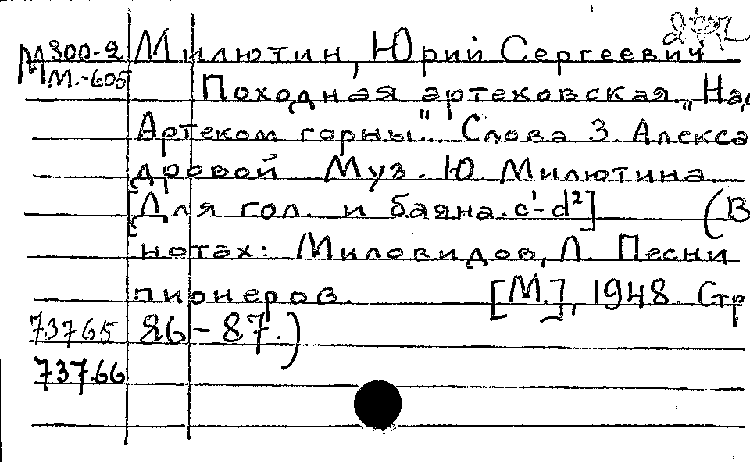 М 800-2 Милютин, Юрий Сергеевич
М.-605 Походная артековская „Над
Артеком горны". Слова З. Алекса
дровой Муз. Ю. Милютина
[Для гол. и баяна. c¹-d²] (В
нотах: Миловидов, Л. Песни
пионеров. [М.], 1948. Стр
73765 86-87.)
73766